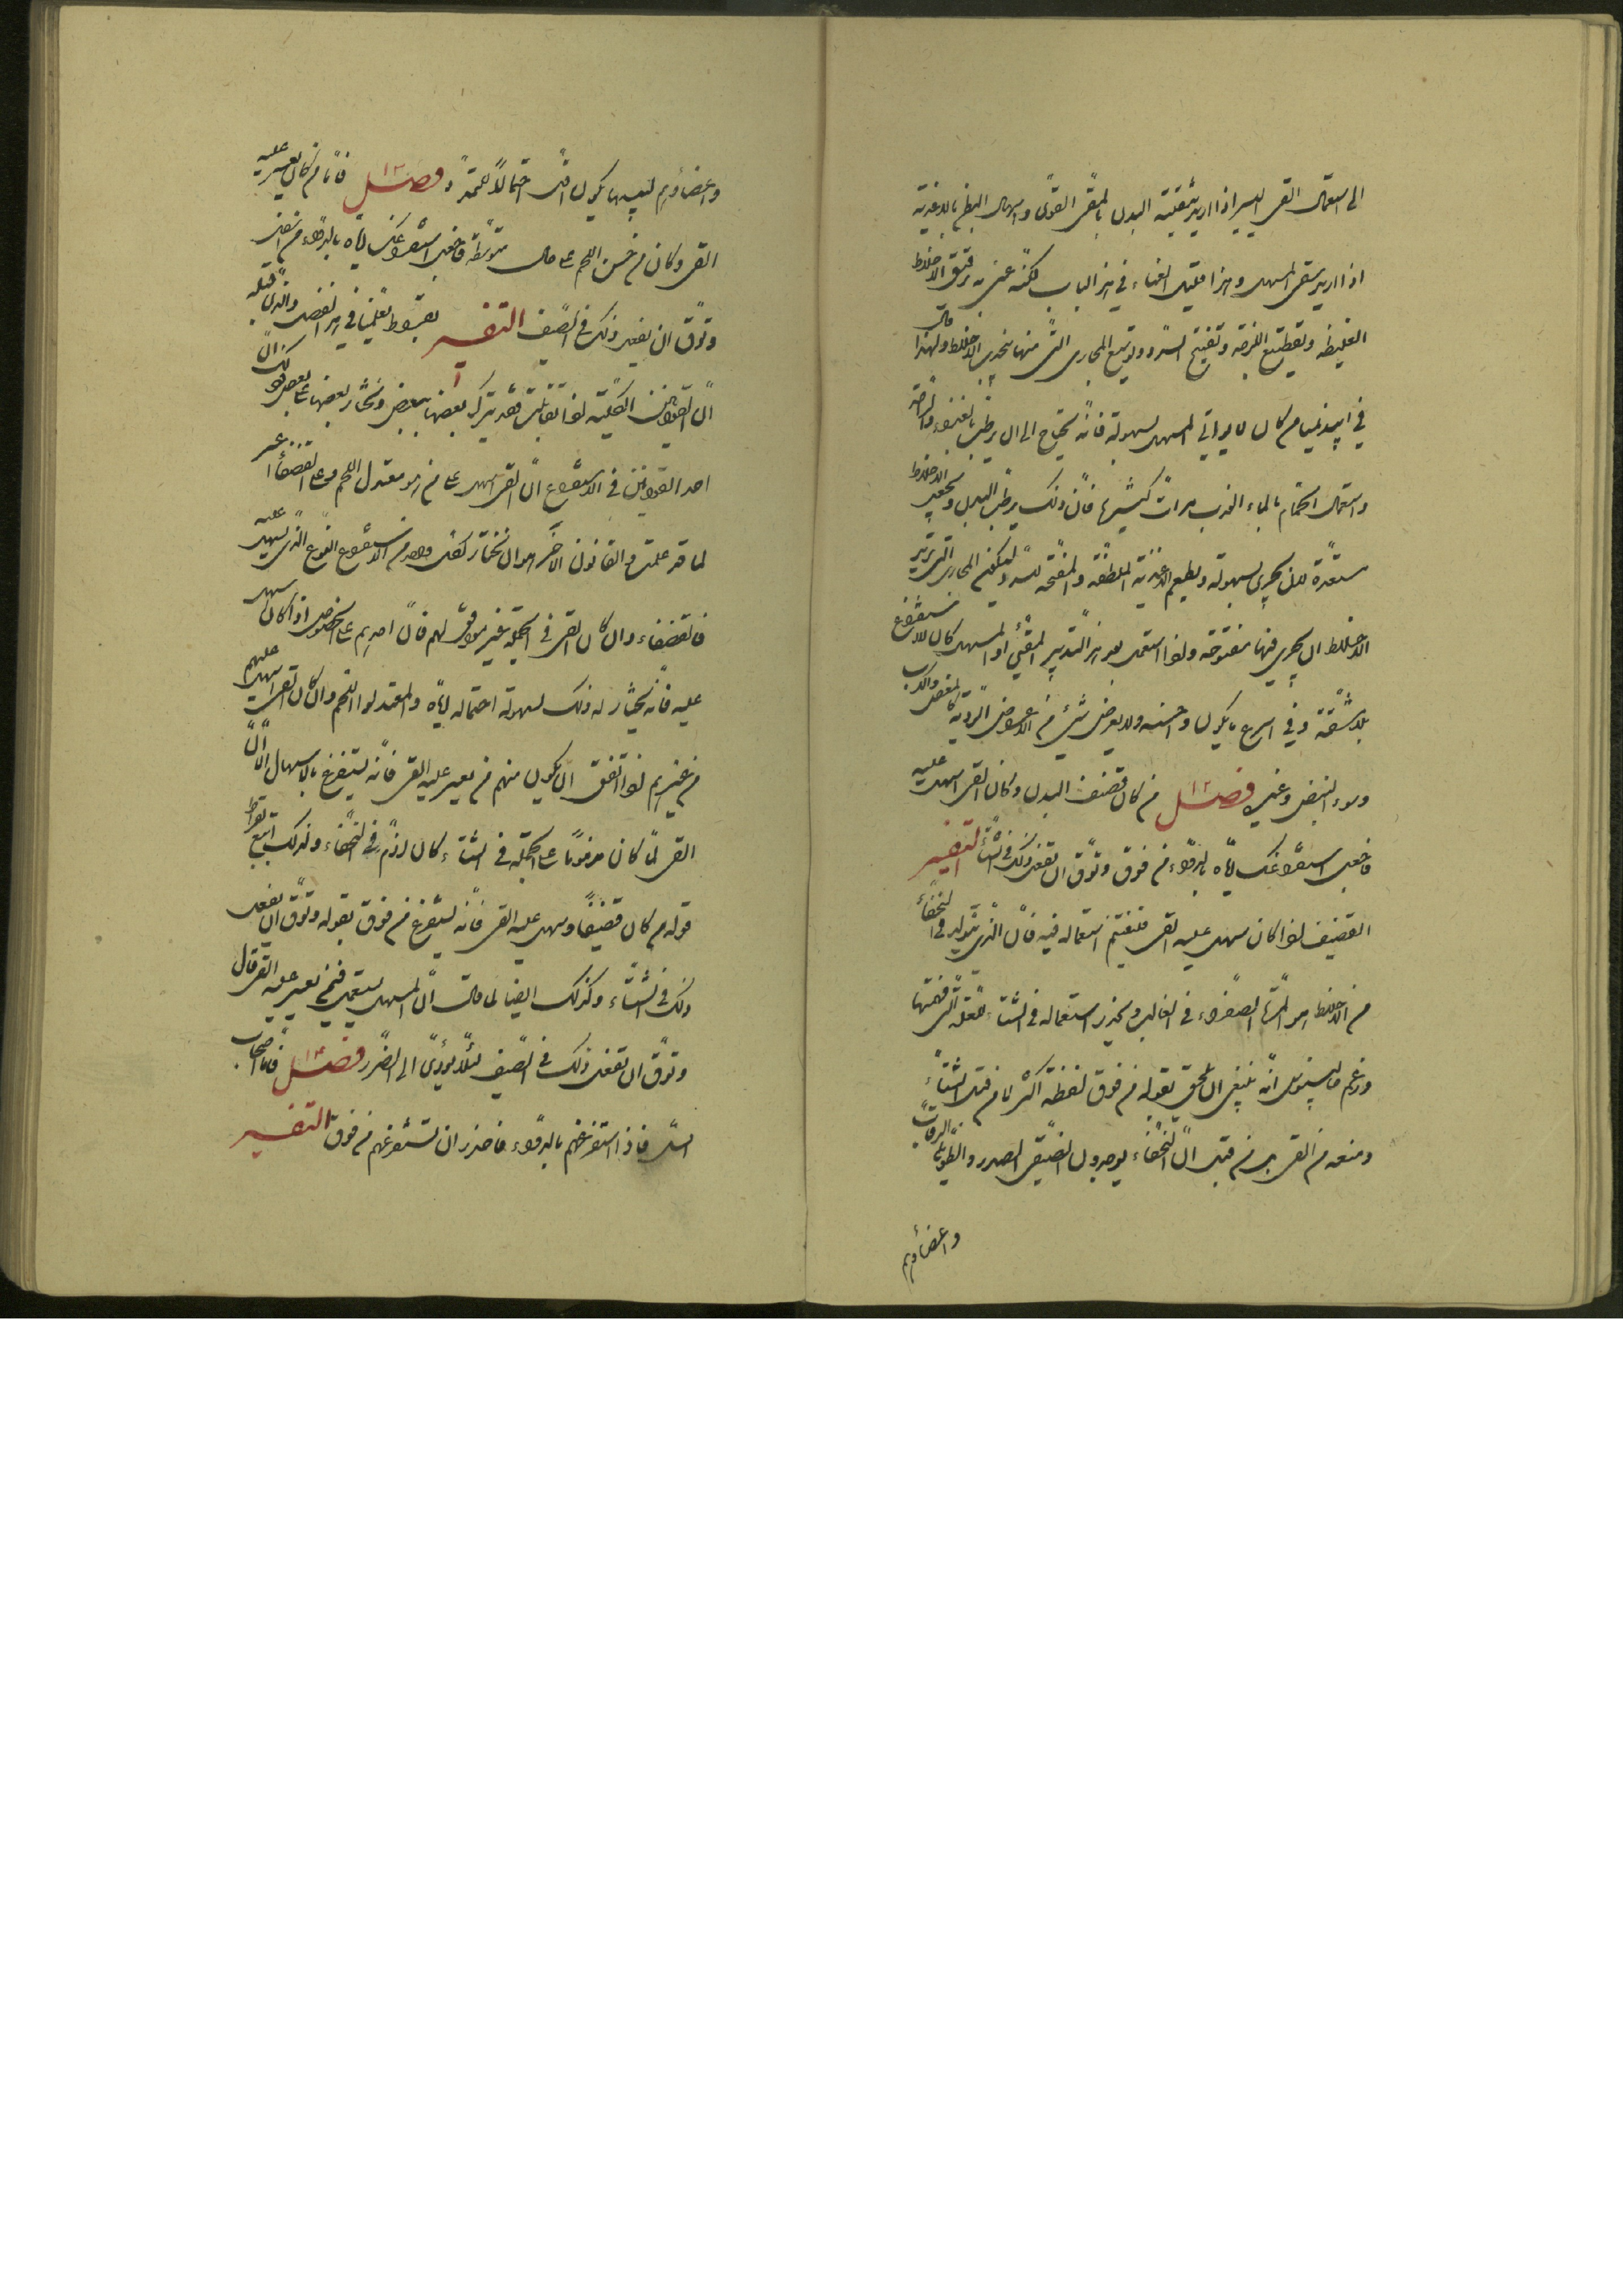 الى استعمال القى اليسير اذا اريد تنقية البدن بالمقى القوى واسهال البطن بالاغذية
اذا اريد سقى المسهل وهذا قليل الغناء فى هذا الباب لكنه عنى به ترقيق الاخلاط
الغليظه وتقطيع اللزجه وتفتيح السدد وتوسيع المجارى التى منها تجرى الاخلاط ولهذا قال
فى ابيذيميا من كان لا يواتى المسهل بسهولة فانه يحتاج الى ان يرطب بالغذاء والراحة
واستعمال الحمام بالماء العذب مرات كثيرة فان ذلك يرطب البدن ويجعل الاخلاط
مستعدة لان تجرى بسهولة ويطعم الاغذية الملطفة والمفتحة للسدد لتكون المجارى التى تريد
الاخلاط ان تجرى فيها مفتوحة واذا استعمل بعد هذا التدبير المقيئ او المسهل كان الاستفراغ
بلا مشقة وفى اسرع ما يكون واحسنه ولا يعرض شئ من الاعراض الردية كالمغص والكرب
وسوء النبض وغيره فصل ١٢ من كان قضيف البدن وكان القى يسهل عليه
فاجعل استفراغك اياه بالدواء من فوق وتوق ان تفعل ذلك فى الشتاء التفسير
القضيف اذا كان يسهل عليه القى فيغتنم استعماله فيه فان الذى يتولد فى النحفاء
من الاخلاط هو المرة الصفراء فى الغالب ويحذر استعماله فى الشتاء للعلة التى فهمتها
وزعم جالينوس انه ينبغى ان يلحق بقوله من فوق لفظة اكثر لا من قبل الشتاء
ومنعه من القى بل من قبل ان النحفاء يوجدون الضيقى الصدر والطويلى الرقاب
واعضاؤهم
واعضاؤهم ليس يكون اقل احتمالا للتمدد فصل ١٣ فاما من كان يعسر عليه
القى وكان من حسن اللحم على حال متوسطة فاجعل استفراغك اياه بالدواء من اسفل
وتوق ان تفعل ذلك فى الصيف التفسير بقراط يعلمنا فى هذا الفصل والذى قبله
ان القوانين الكلية اذا تقابلت فقد يترك بعضها ببعض ويختار بعضها على بعض وذلك ان
احد القوانين فى الاستفراغ ان القى اسهل على من هو معتدل اللحم وعلى القضفاء اعسر
لما قد علمت والقانون الآخر هو ان تختار لكل واحد من الاستفراغ النوع الذى يسهل عليه
فالقضفاء وان كان القى فى الجملة غير موافق لهم فان احدهم على الخصوص اذا كان يسهل
عليه فانه يختار له ذلك لسهولة احتماله اياه والمعتدلوا اللحم وان كان القى اسهل عليهم
من غيرهم اذا اتفق ان يكون منهم من يعسر عليه القى فانه يستفرغ بالاسهال الا ان
القى لما كان مذموما على الجملة فى الشتاء كان اذم فى النحفاء ولذلك اتبع بقراط
قوله من كان قضيفا ويسهل عليه القى فانه يستفرغ من فوق بقوله وتوق ان تفعل
ذلك فى الشتاء وكذلك ايضا لما قال ان المسهل يستعمل فيمن يعسر عليه القى قال
وتوق ان تفعل ذلك فى الصيف لئلا يؤدى الى الضرر فصل ١٤ فاما اصحاب
السل فاذا استفرغتهم بالدواء فاحذر ان تستفرغهم من فوق التفسير